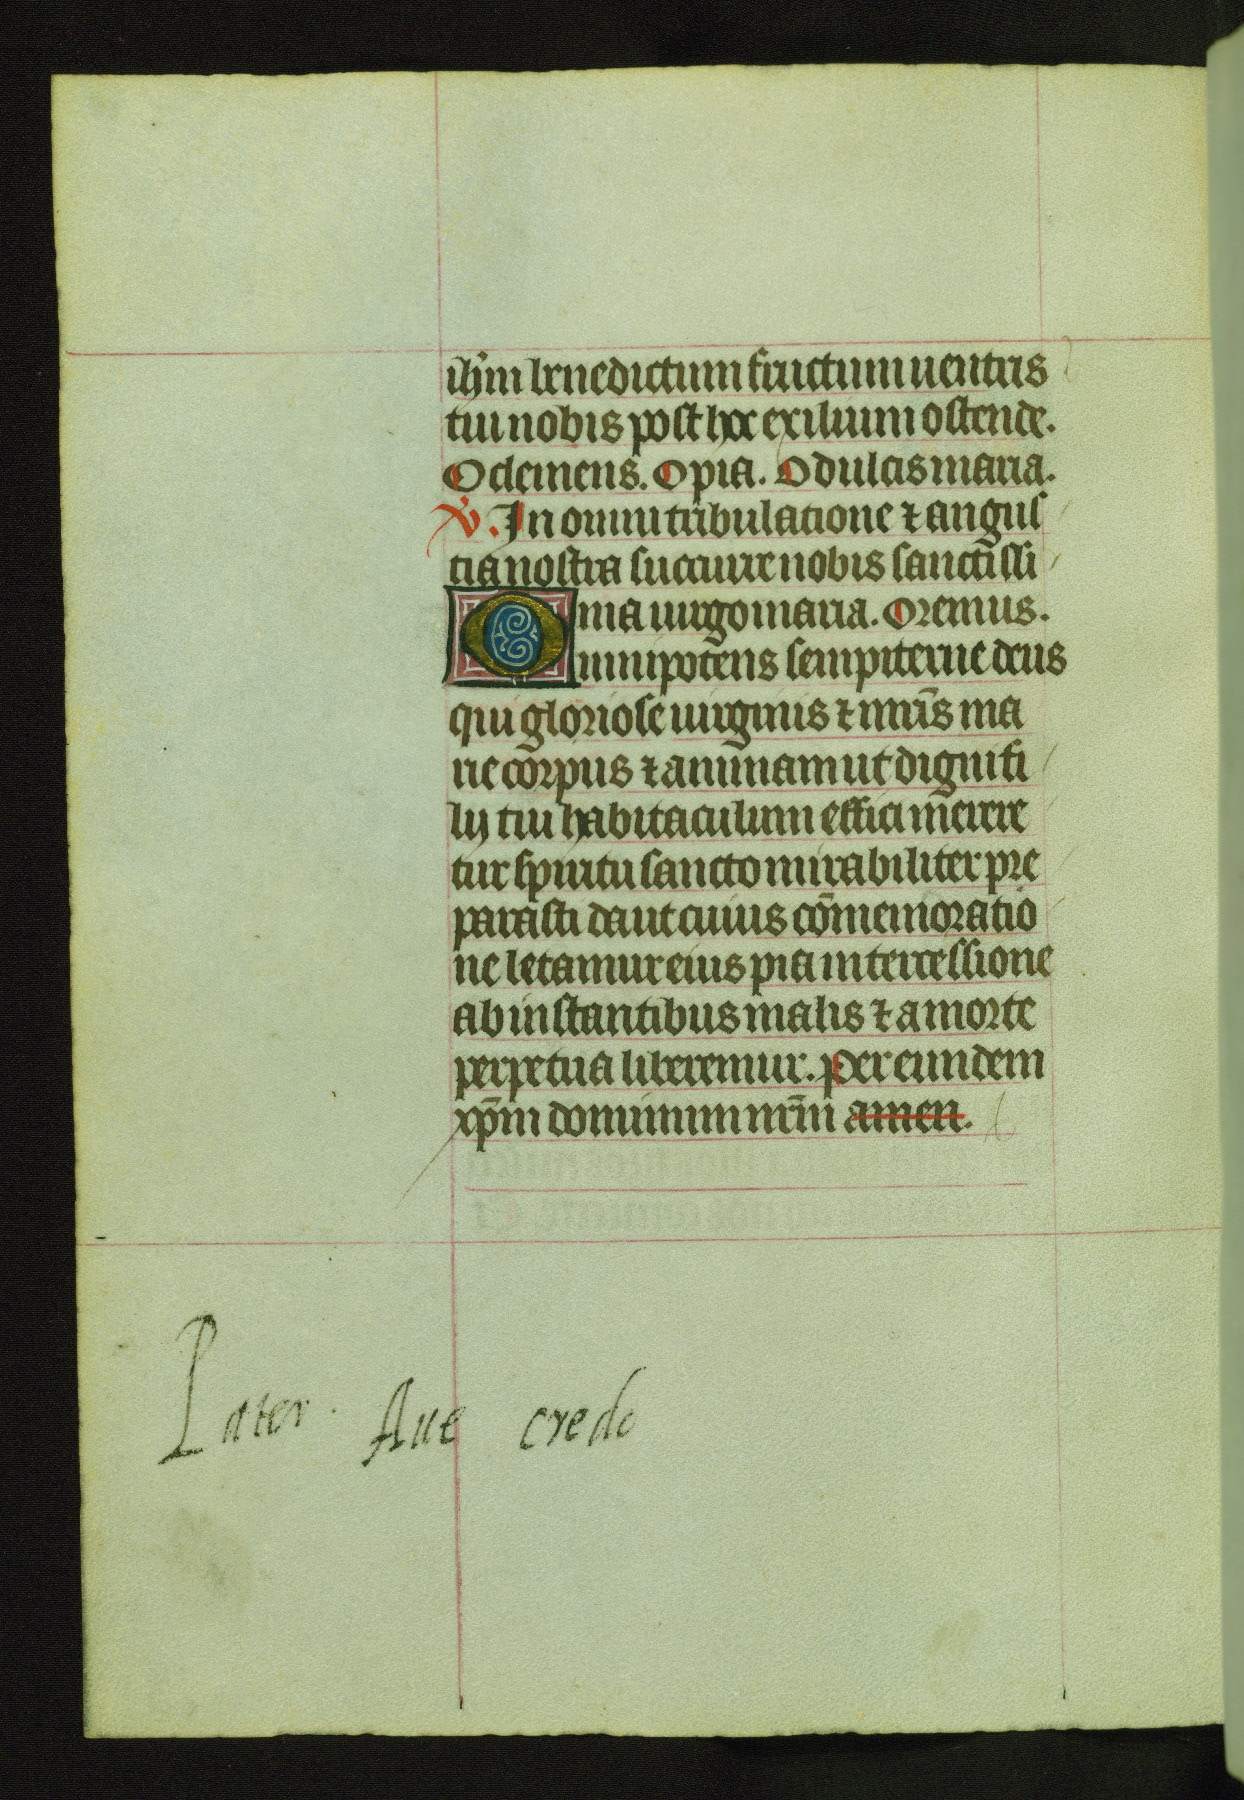 ih̄m benedictum fructum uentris
tui nobis post hoc exilium ostende.
O clemens. O pia. O dulcis maria.
V̄. In omni tribulatione ⁊ angus
tia nostra succurre nobis sanctissi
ma uirgo maria. Oremus.
Omnipotens sempiterne deus
qui gloriose uirginis ⁊ mr̄is ma
rie corpus ⁊ animam ut digni fi
lij tui habitaculum effici merere
tur spiritu sancto mirabiliter pre
parasti da ut cuius cōmemoratio
ne letamur eius pia intercessione
ab instantibus malis ⁊ a morte
perpetua liberemur. Per eundem
xp̄m dominum nr̄m amen.
Pater. Aue credo